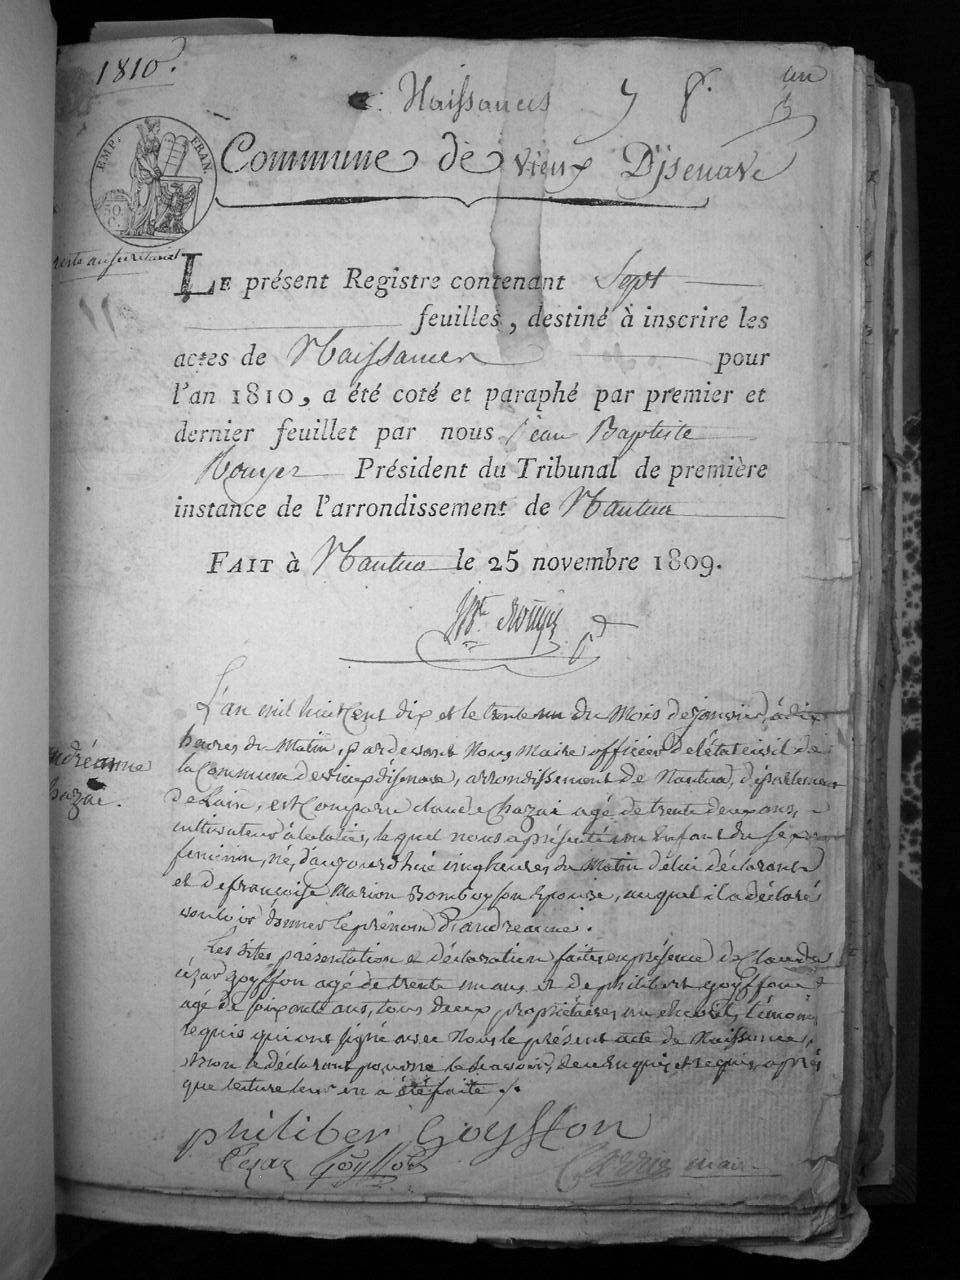 1810.
Naissances 7 8. un
EMP. FRAN.
50 C.
Commune de vieux Dijsenave
LE présent Registre contenant Sept
feuilles, destiné à inscrire les
actes de Naissances pour
l'an 1810, a été coté et paraphé par premier et
dernier feuillet par nous Jean Baptiste
Rouyer Président du Tribunal de première
instance de l'arrondissement de Nantua
FAIT à Nantua le 25 novembre 1809.
L'an mil huit Cent dix et le trente un du Mois de janvier, à dix
heures du Matin, pardevant Nous Maire officier de l'état civil de
la Commune de vieux disenave, arrondissement de Nantua, département
De Lain, est Comparu claude Chazai agé de trente deux ans,
cultivateur lequel nous a présenté un Enfant du sexe
feminin, né, d'aujourd'hui cinq heures du Matin de lui déclarant
et de françoise Marion Bomboy son Epouse, auquel il a déclaré
vouloir donner le prénom D'andreanne.
Les dites présentation et déclaration faites en présence de Claude
césar goyffon agé de trente un ans et de philibert goyffon
agé de soixante ans, tous deux propriétaires au témoins
requis qui ont signé avec Nous le présent acte de Naissance,
et non le déclarant pour ne le savoir, de ce Enquis et requis, après
que lecture leur en a été faite ./.
andréanne
chazai.
philiber Goyffon
César Goyffon maire